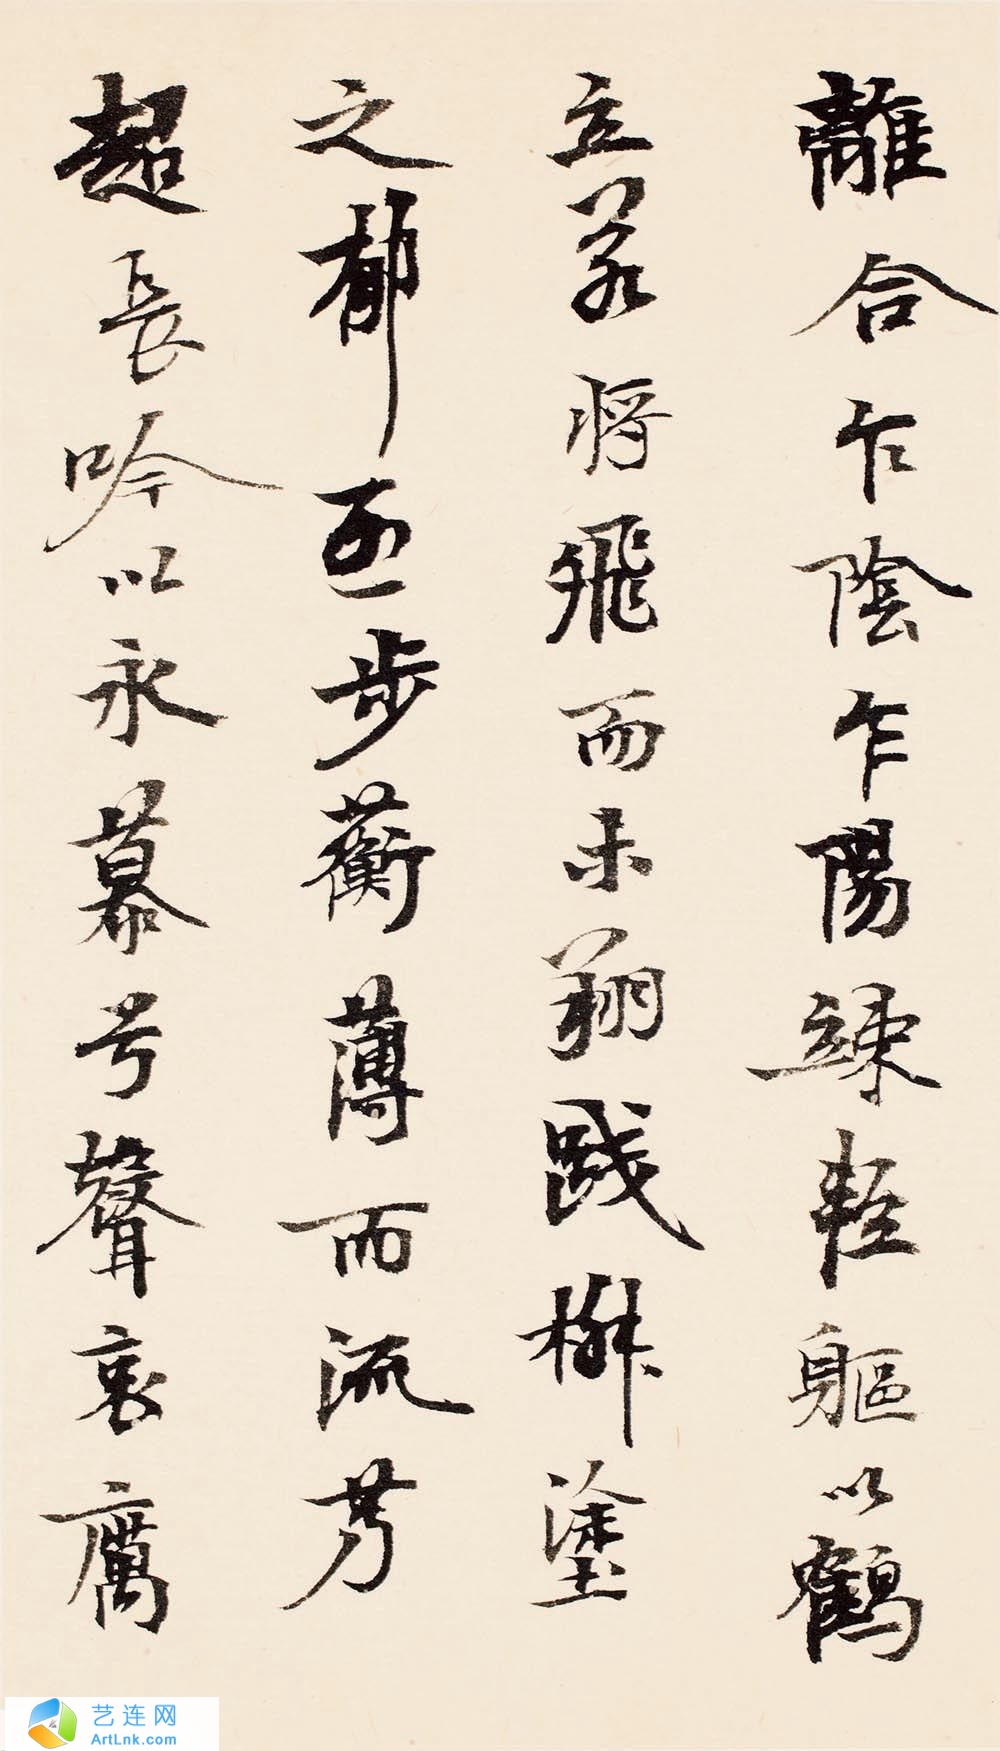 離合乍陰乍陽竦輕軀以鶴
立若將飛而未翔踐椒塗
之郁烈步蘅薄而流芳
超長吟以永慕兮聲哀厲
艺连网
ArtLnk.com